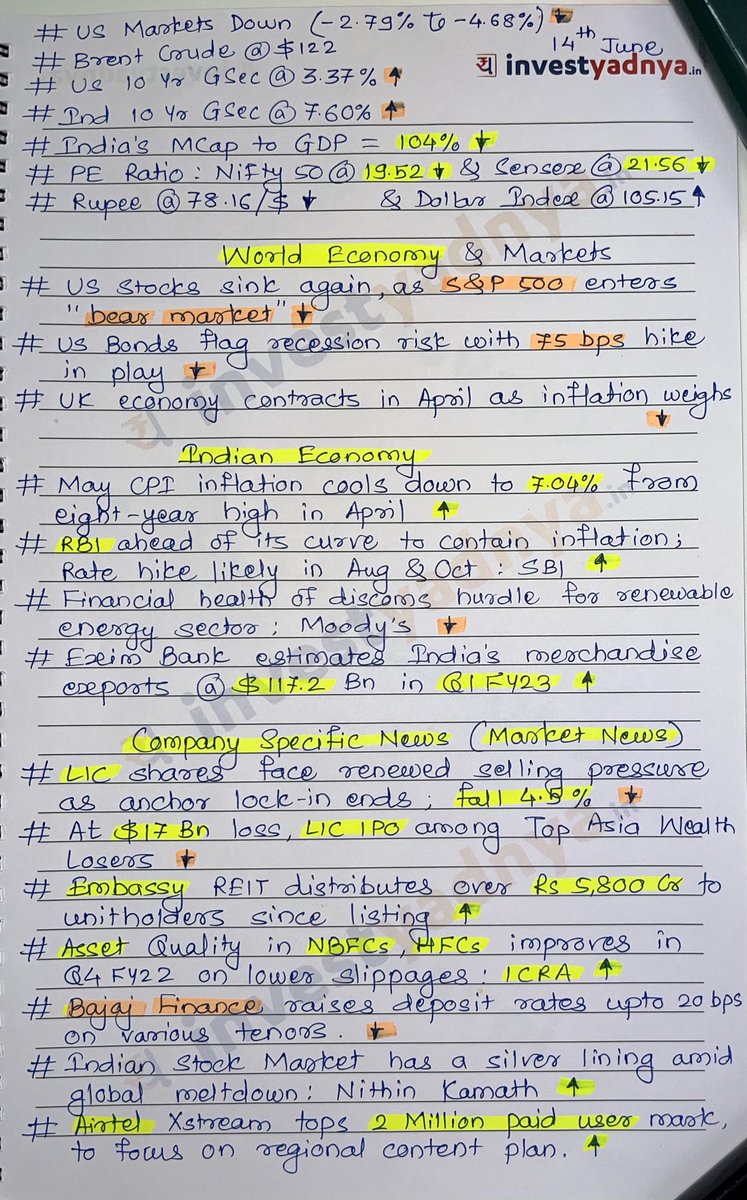 # US Markets Down (-2.79% to -4.68%) ↓
14th June
# Brent Crude @ $122
य investyadnya.in
# US 10 Yr GSec @ 3.37% ↑
# Ind 10 Yr GSec @ 7.60% ↑
# India's MCap to GDP = 104% ↓
# PE Ratio : Nifty 50 @ 19.52 ↓ & Sensex @ 21.56 ↓
# Rupee @ 78.16/$ ↓ & Dollar Index @ 105.15 ↑
World Economy & Markets
# US Stocks sink again, as S&P 500 enters
"bear market" ↓
# US Bonds flag recession risk with 75 bps hike
in play ↓
# UK economy contracts in April as inflation weighs
↓
Indian Economy
# May CPI inflation cools down to 7.04% from
eight-year high in April ↑
# RBI ahead of its curve to contain inflation;
Rate hike likely in Aug & Oct : SBI ↑
# Financial health of discoms hurdle for renewable
energy sector : Moody's ↓
# Exim Bank estimates India's merchandise
exports @ $117.2 Bn in Q1 FY23 ↑
Company Specific News (Market News)
# LIC shares face renewed selling pressure
as anchor lock-in ends ; fall 4.5% ↓
# At $17 Bn loss, LIC IPO among Top Asia Wealth
Losers ↓
# Embassy REIT distributes over Rs 5,800 Cr to
unitholders since listing ↑
# Asset Quality in NBFCs, HFCs improves in
Q4 FY22 on lower slippages : ICRA ↑
# Bajaj Finance raises deposit rates upto 20 bps
on various tenors. ↓
# Indian Stock Market has a silver lining amid
global meltdown : Nithin Kamath ↑
# Airtel Xstream tops 2 Million paid user mark,
to focus on regional content plan. ↑